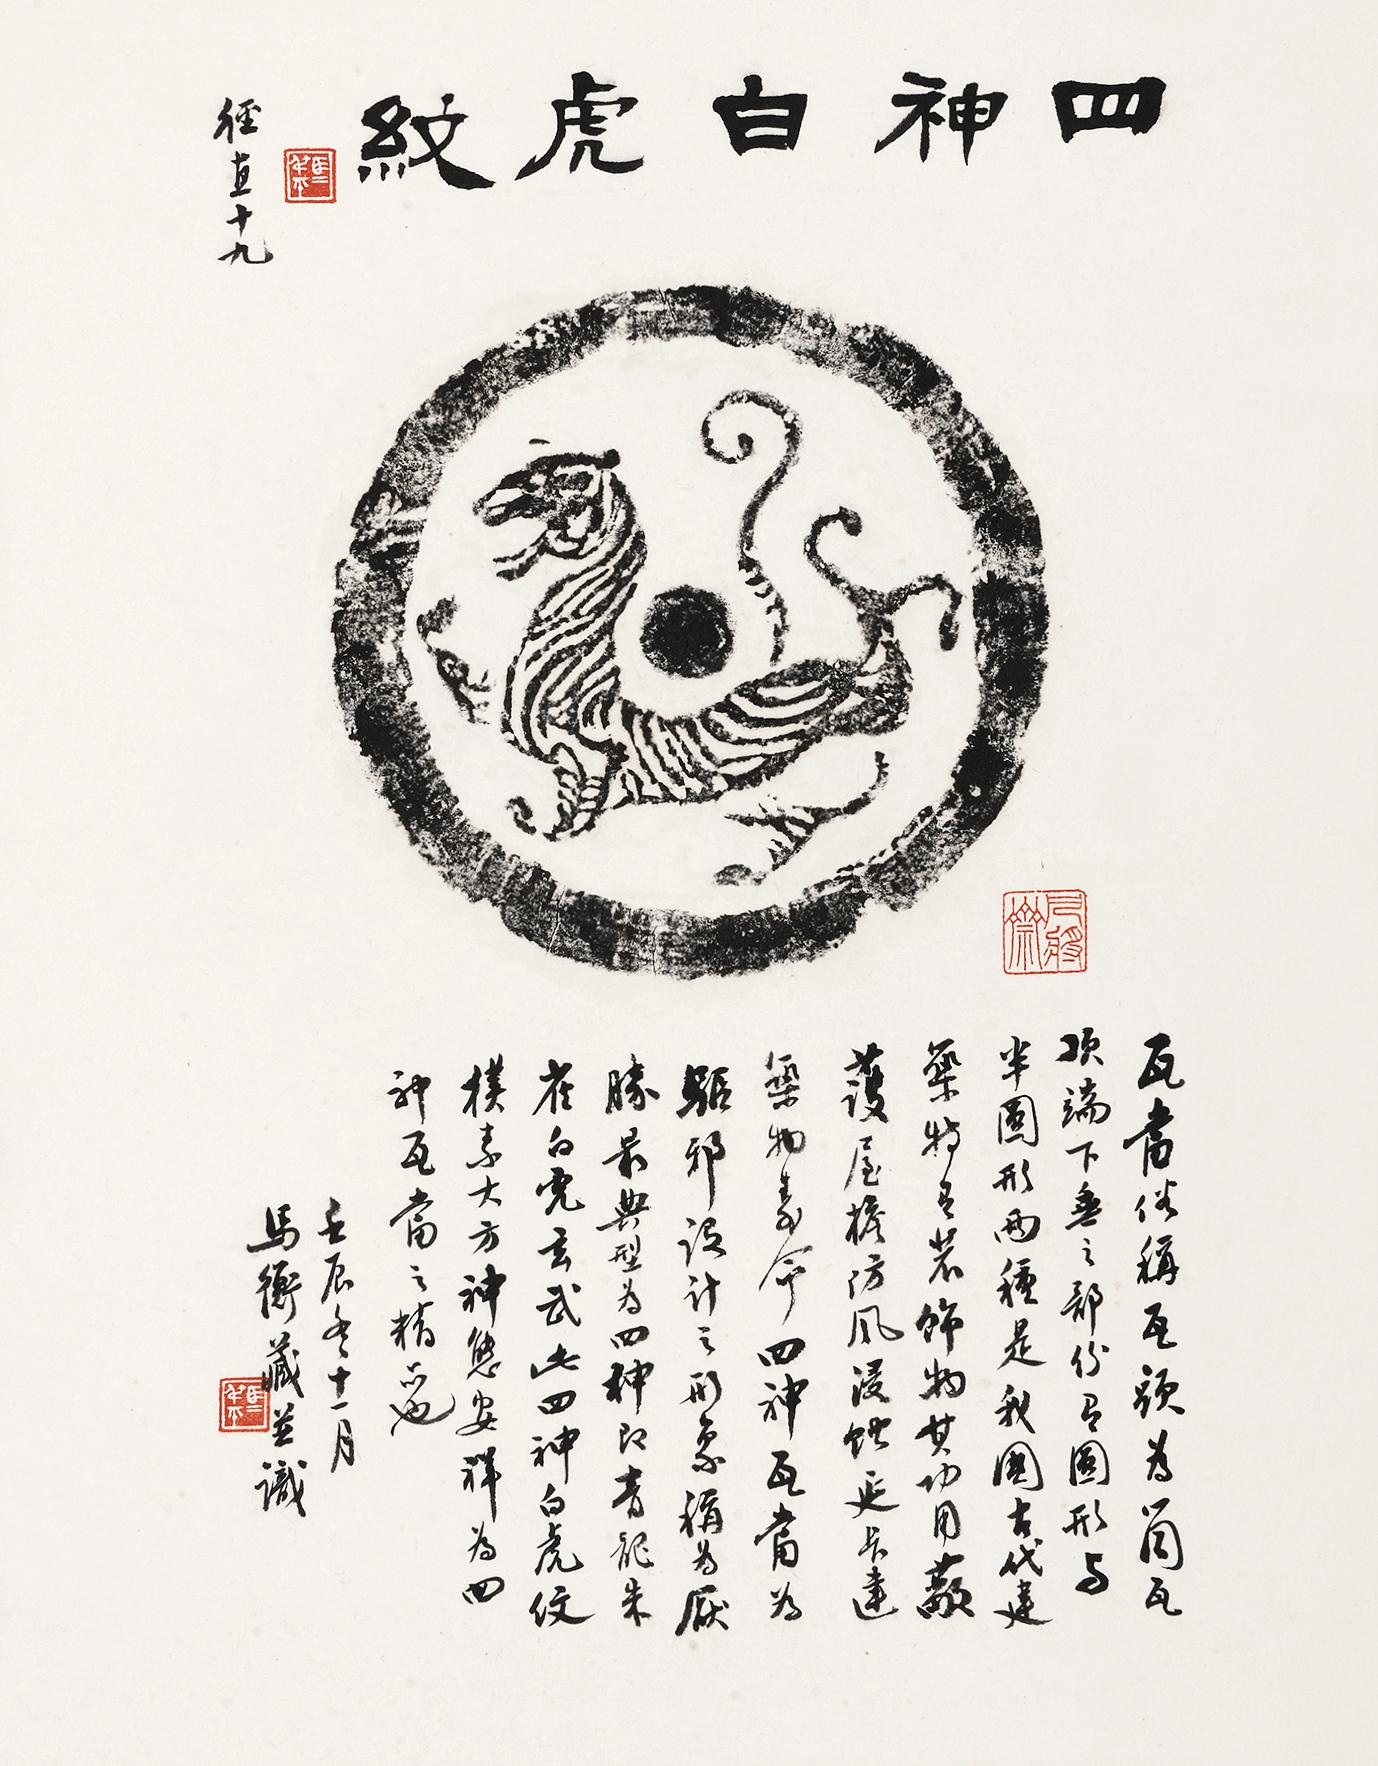 四神白虎紋
徑直十九
瓦當俗稱瓦頭為筒瓦
頂端下垂之部份有圓形與
半圓形兩種是我國古代建
築特有裝飾物其功用蔽
護屋檐防風浸蝕延長建
築物壽命四神瓦當為
驅邪設計之形象稱為厭
勝最典型為四神即青龍朱
雀白虎玄武此四神白虎紋
樸素大方神態安祥為四
神瓦當之精品也
壬辰冬十一月
馬衡藏並識